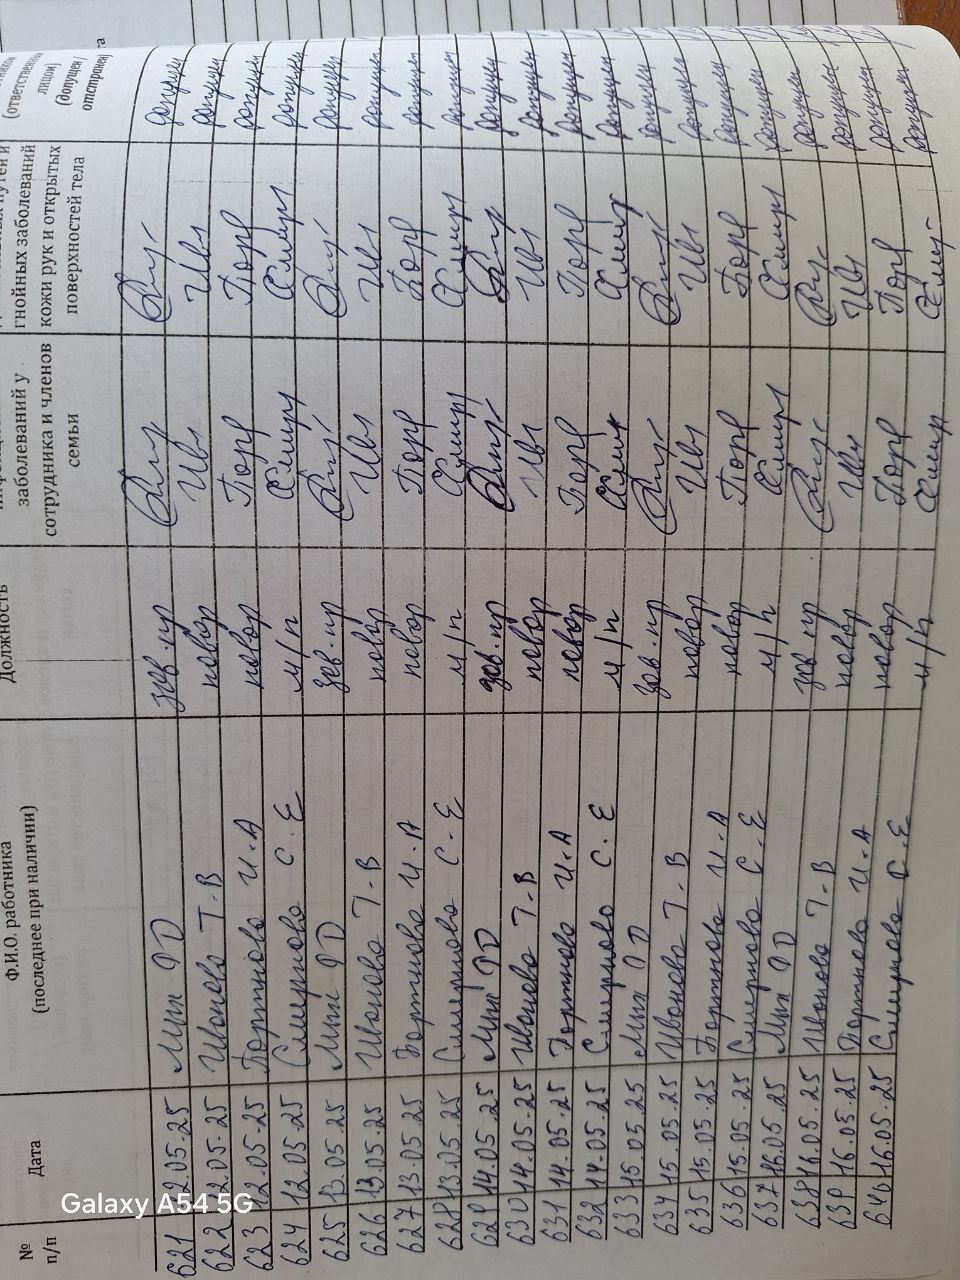 № п/п Дата Ф.И.О. работника (последнее при наличии) Должность заболеваний у сотрудника и членов семьи гнойных заболеваний кожи рук и открытых поверхностей тела (ответственн лицом) (допущен / отстранен)
621 12.05.25 зав.пр допущен
622 12.05.25 Иванова Т.В повар Ив допущен
623 12.05.25 Портнова И.А повар Порт допущен
624 12.05.25 Смирнова С.Е м/п Смир допущен
625 13.05.25 зав.пр допущен
626 13.05.25 Иванова Т.В повар Ив допущен
627 13.05.25 Портнова И.А повар Порт допущен
628 13.05.25 Смирнова С.Е м/п Смир допущен
629 14.05.25 зав.пр допущен
630 14.05.25 Иванова Т.В повар Ив допущен
631 14.05.25 Портнова И.А повар Порт допущен
632 14.05.25 Смирнова С.Е м/п допущен
633 15.05.25 зав.пр допущен
634 15.05.25 Иванова Т.В повар Ив допущен
635 15.05.25 Портнова И.А повар Порт допущен
636 15.05.25 Смирнова С.Е м/п Смир допущен
637 16.05.25 зав.пр допущен
638 16.05.25 Иванова Т.В повар Ив допущен
639 16.05.25 Портнова И.А повар Порт допущен
640 16.05.25 Смирнова С.Е м/п Смир допущен
Galaxy A54 5G